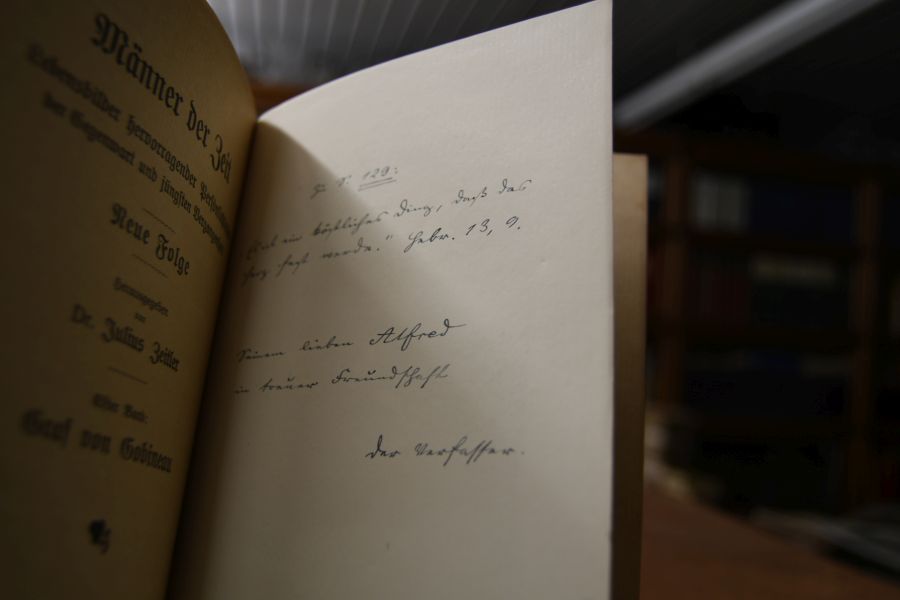 Männer der Zeit
Lebensbilder hervorragender Persönlichkeiten
der Gegenwart und jüngsten Vergangenheit
Neue Folge
Herausgegeben
von
Dr. Julius Zeitler
Elfter Band:
Graf von Gobineau
Zu S. 129:
"Es ist ein köstliches Ding, daß das
Herz fest werde." Hebr. 13, 9.
Seinem lieben Alfred
in treuer Freundschaft
der Verfasser.